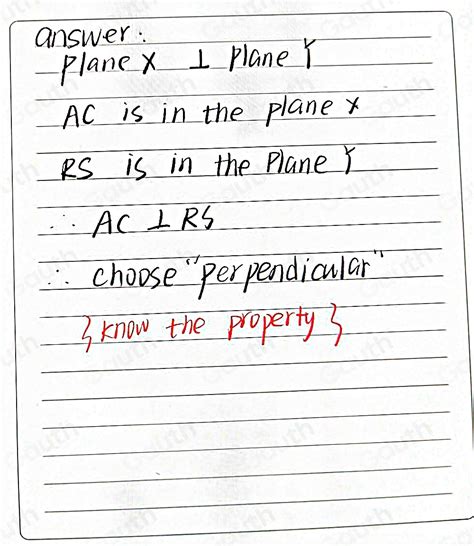 answer:
plane X ⊥ plane Y
AC is in the plane X
RS is in the plane Y
∴ AC ⊥ RS
∴ choose "perpendicular"
{ know the property }